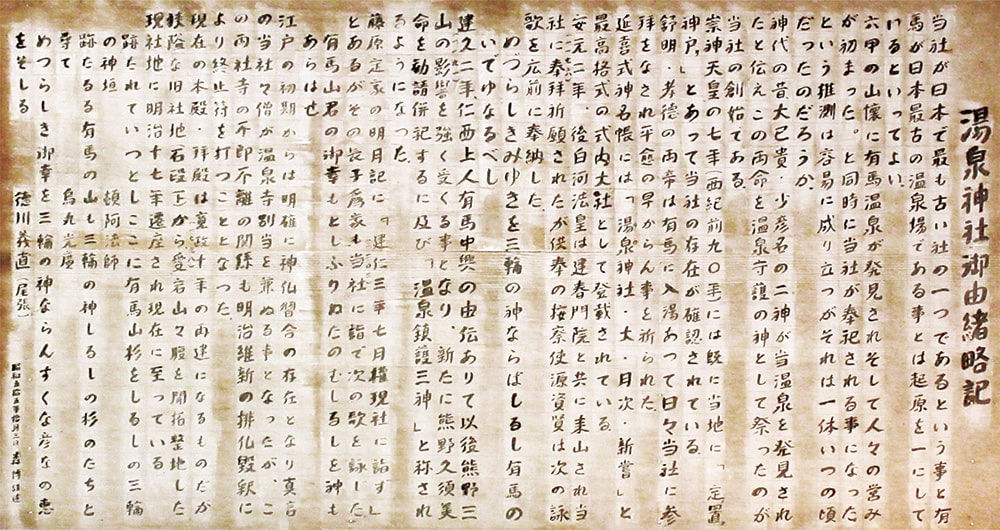 湯泉神社御由緒略記
当社が日本で最も古い社の一つであるという事と有
馬が日本最古の温泉場である事とは起原を一にして
いるといってよい。
六甲の山懐に有馬温泉が発見されそして人々の営み
が初まった。と同時に当社が奉祀される事になった
という推測は容易に成り立つがそれは一体いつの頃
だったのだろうか。
神代の昔大已貴・少彦名の二神が当温泉を発見され
たと伝えこの両命を温泉守護の神として祭ったのが
当社の創始である。
崇神天皇の七年(西紀前九〇年)には既に当地に「定置
神戸」とあって当社の存在が確認されている
舒明・孝徳の両帝は有馬に入湯あって日々当社に参
拝をなされ平愈の早からん事を祈られた
延喜式神名帳には「湯泉神社・大・月次・新嘗」と
最高格式の式内大社として登載されている
安元二年・後白河法皇は建春門院と共に来山され当
社に奉拝祈願されたが供奉の按察使源資賢は次の詠
歌を広前に奉納した
めつらしきみゆきを三輪の神ならばしるし有馬の
いでゆなるべし
建久二年仁西上人有馬中興の由伝ありて以後熊野三
山の影響を強く受くる事となり、新たに熊野久須美
命を勧請併祀するに及び「温泉鎮護三神」と称され
るようになった
藤原定家の明月記に「建仁三年七月権現社に詣す」
とあるがその長子為家も当社に詣で次の歌を詠した
有馬山君の御幸もとしふりぬたのむしるしを神も
あらはせ
江戸の初期からは明確に神仏習合の存在となり真言
の当社々僧が温泉寺別当を兼ぬる事となったが、こ
の両社寺の不即不離の関係も明治維新の排仏毀釈に
より終止符を打つこととなった。
現在の本殿・拝殿は寛政十年の再建になるものだが
狭隘な旧社地石段上から愛宕山々腹を開拓整地した
現社地に明治十七年遷座され現在に至っている
跡たれていつとしここに有馬山杉をしるしの三輪
の神垣 頓阿法師
跡たるる有馬の山も三輪の神しるしの杉のたちと
尋て 烏丸光廣
めつらしき御幸を三輪の神ならんすくな彦なの恵
をそしる 徳川義直(尾張)